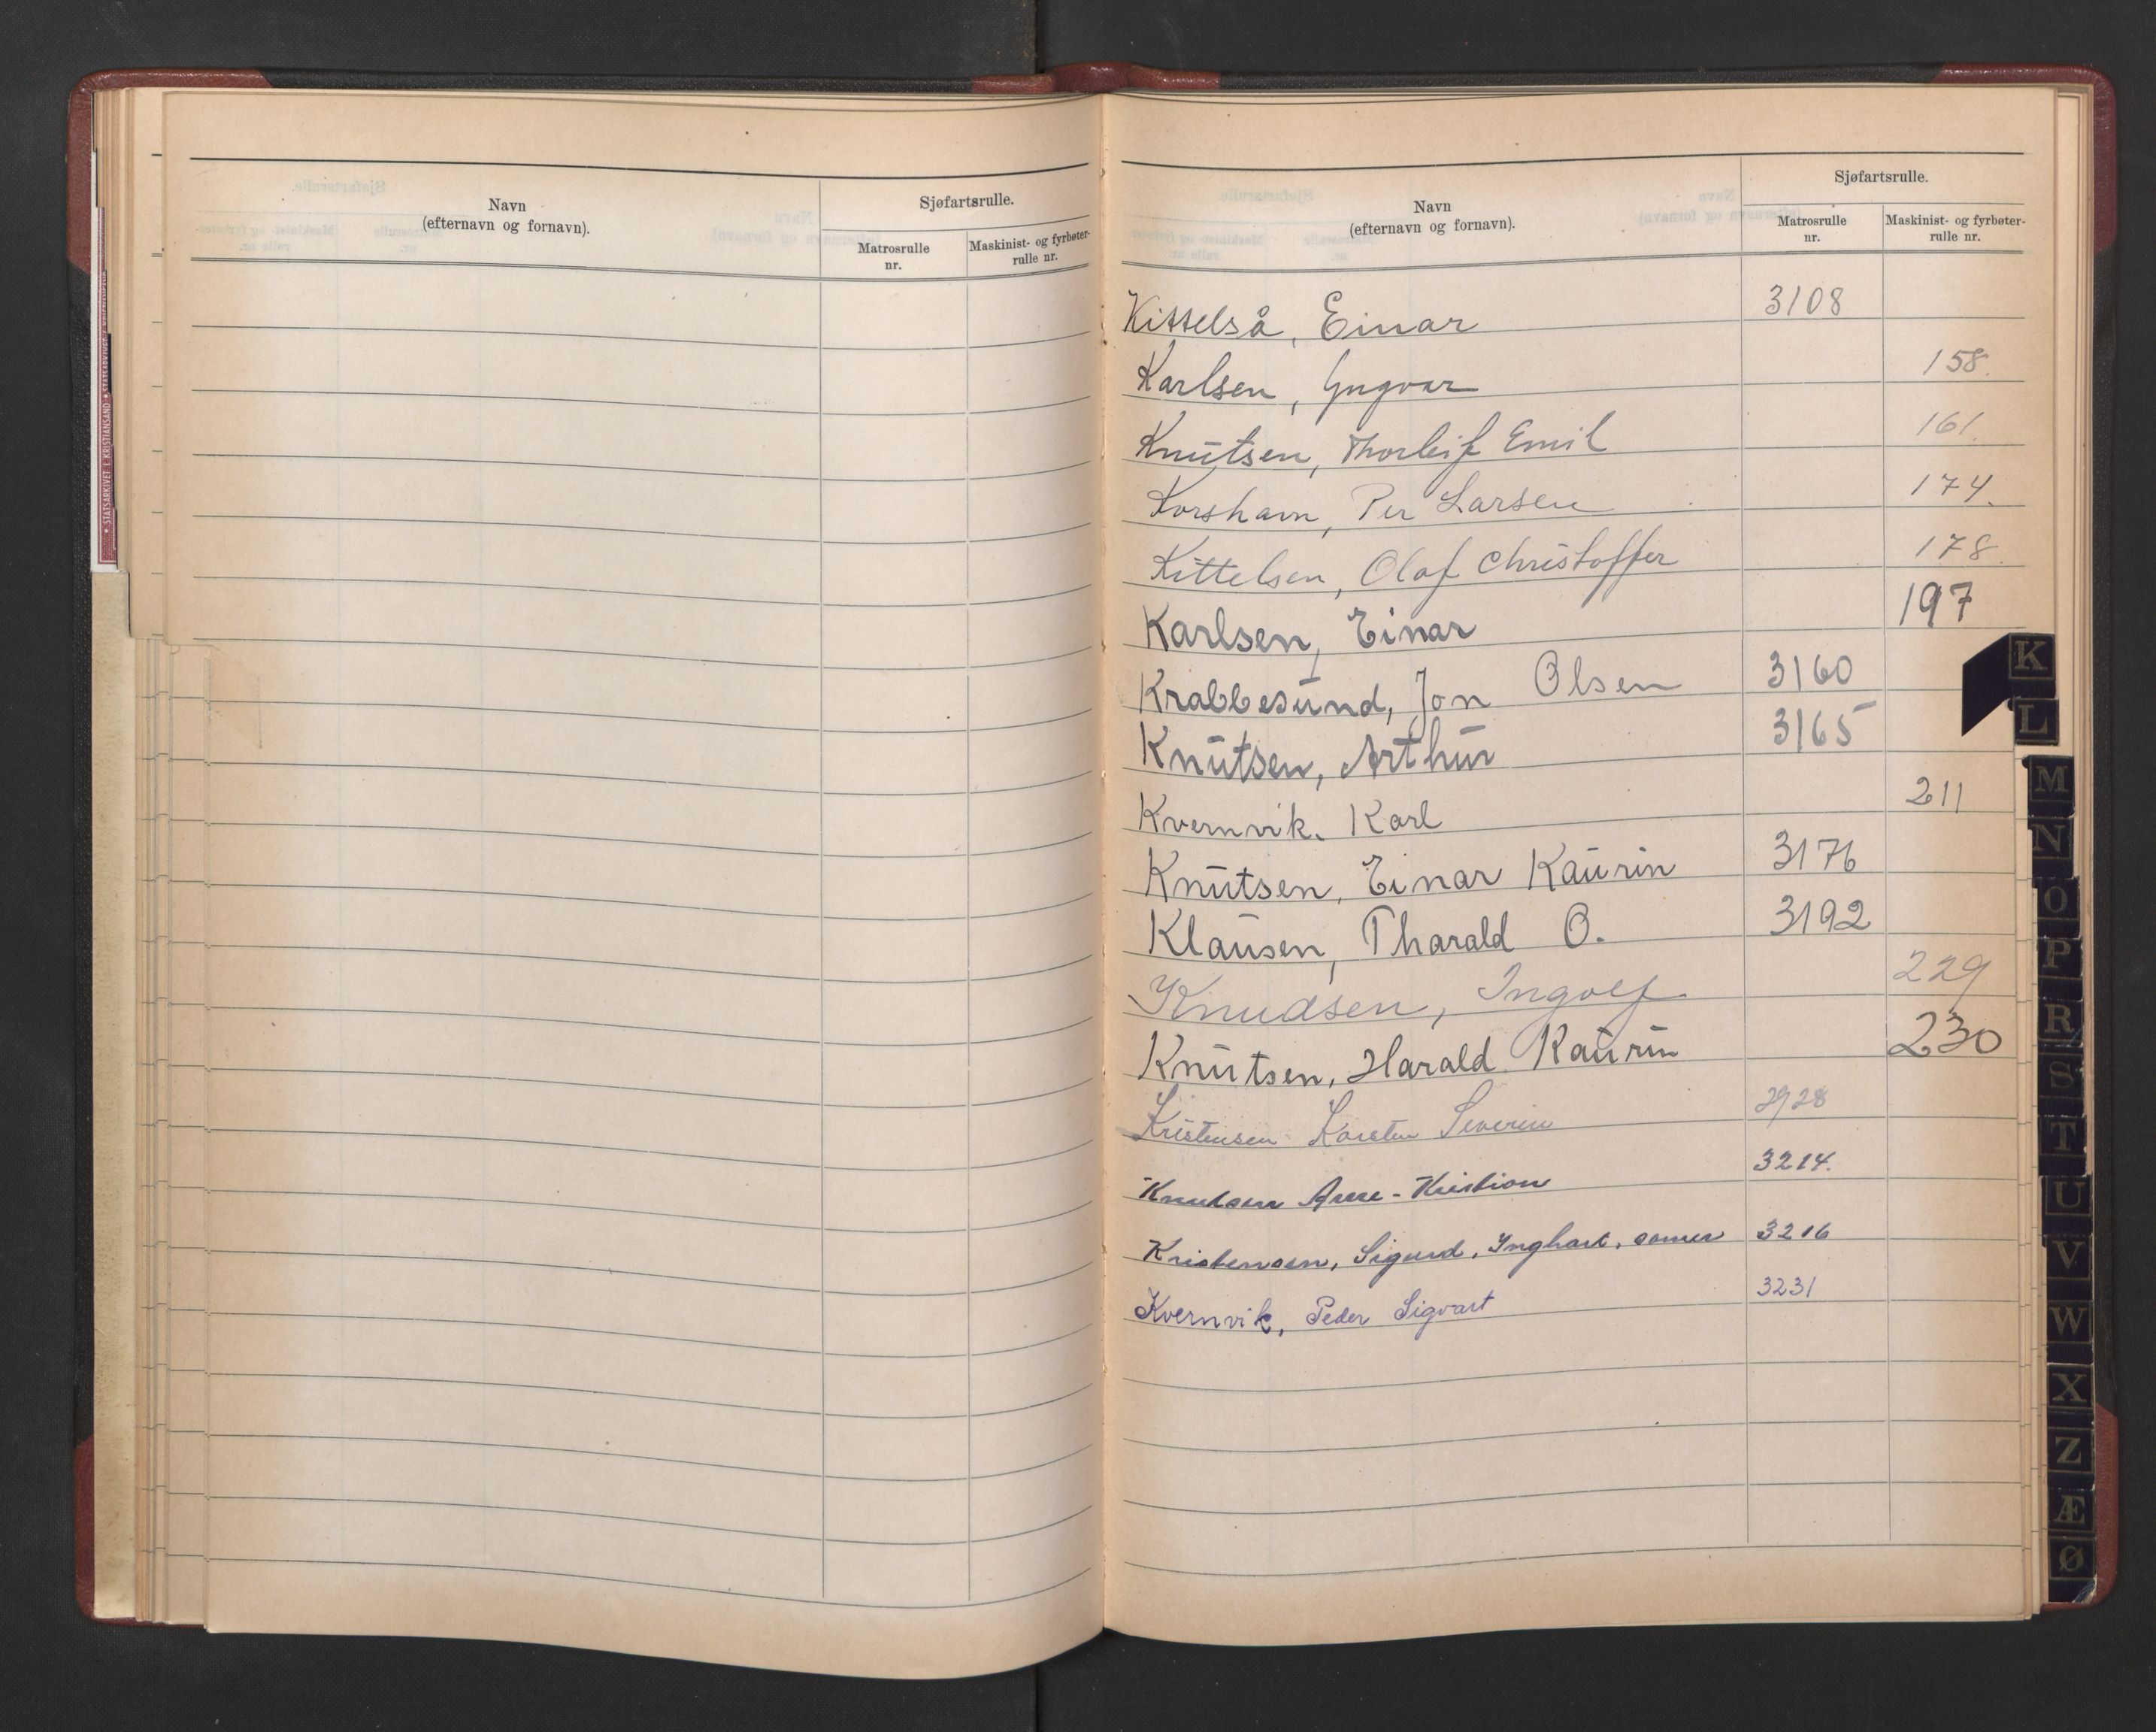 Navn
(efternavn og fornavn).
Sjøfartsrulle.
Matrosrulle
nr.
Maskinist- og fyrbøter-
rulle nr.
Navn
(efternavn og fornavn).
Sjøfartsrulle.
Matrosrulle
nr.
Maskinist- og fyrbøter-
rulle nr.
Kittelså, Einar 3108
Karlsen, Yngvar 158.
Knutsen, Thorleif Emil 161.
Korshavn, Per Larsen 174.
Kittelsen, Olaf Christoffer 178.
Karlsen, Einar 197
Krabbesund, Jon Olsen 3160
Knutsen, Arthur 3165
Kvernvik, Karl 211
Knutsen, Einar Kaurin 3176
Klausen, Tharald O. 3192
Knudsen, Ingolf 229
Knutsen, Harald Kaurin 230
Kristensen Karsten Severin 2928
Knudsen Arne-Kristian 3214.
Kristensen, Sigurd, Inghart, 3216
Kvernvik, Peder Sigvart 3231
K
L
M
N
O
P
R
S
T
U
V
W
X
Z
Æ
Ø
STATSARKIVET I KRISTIANSAND